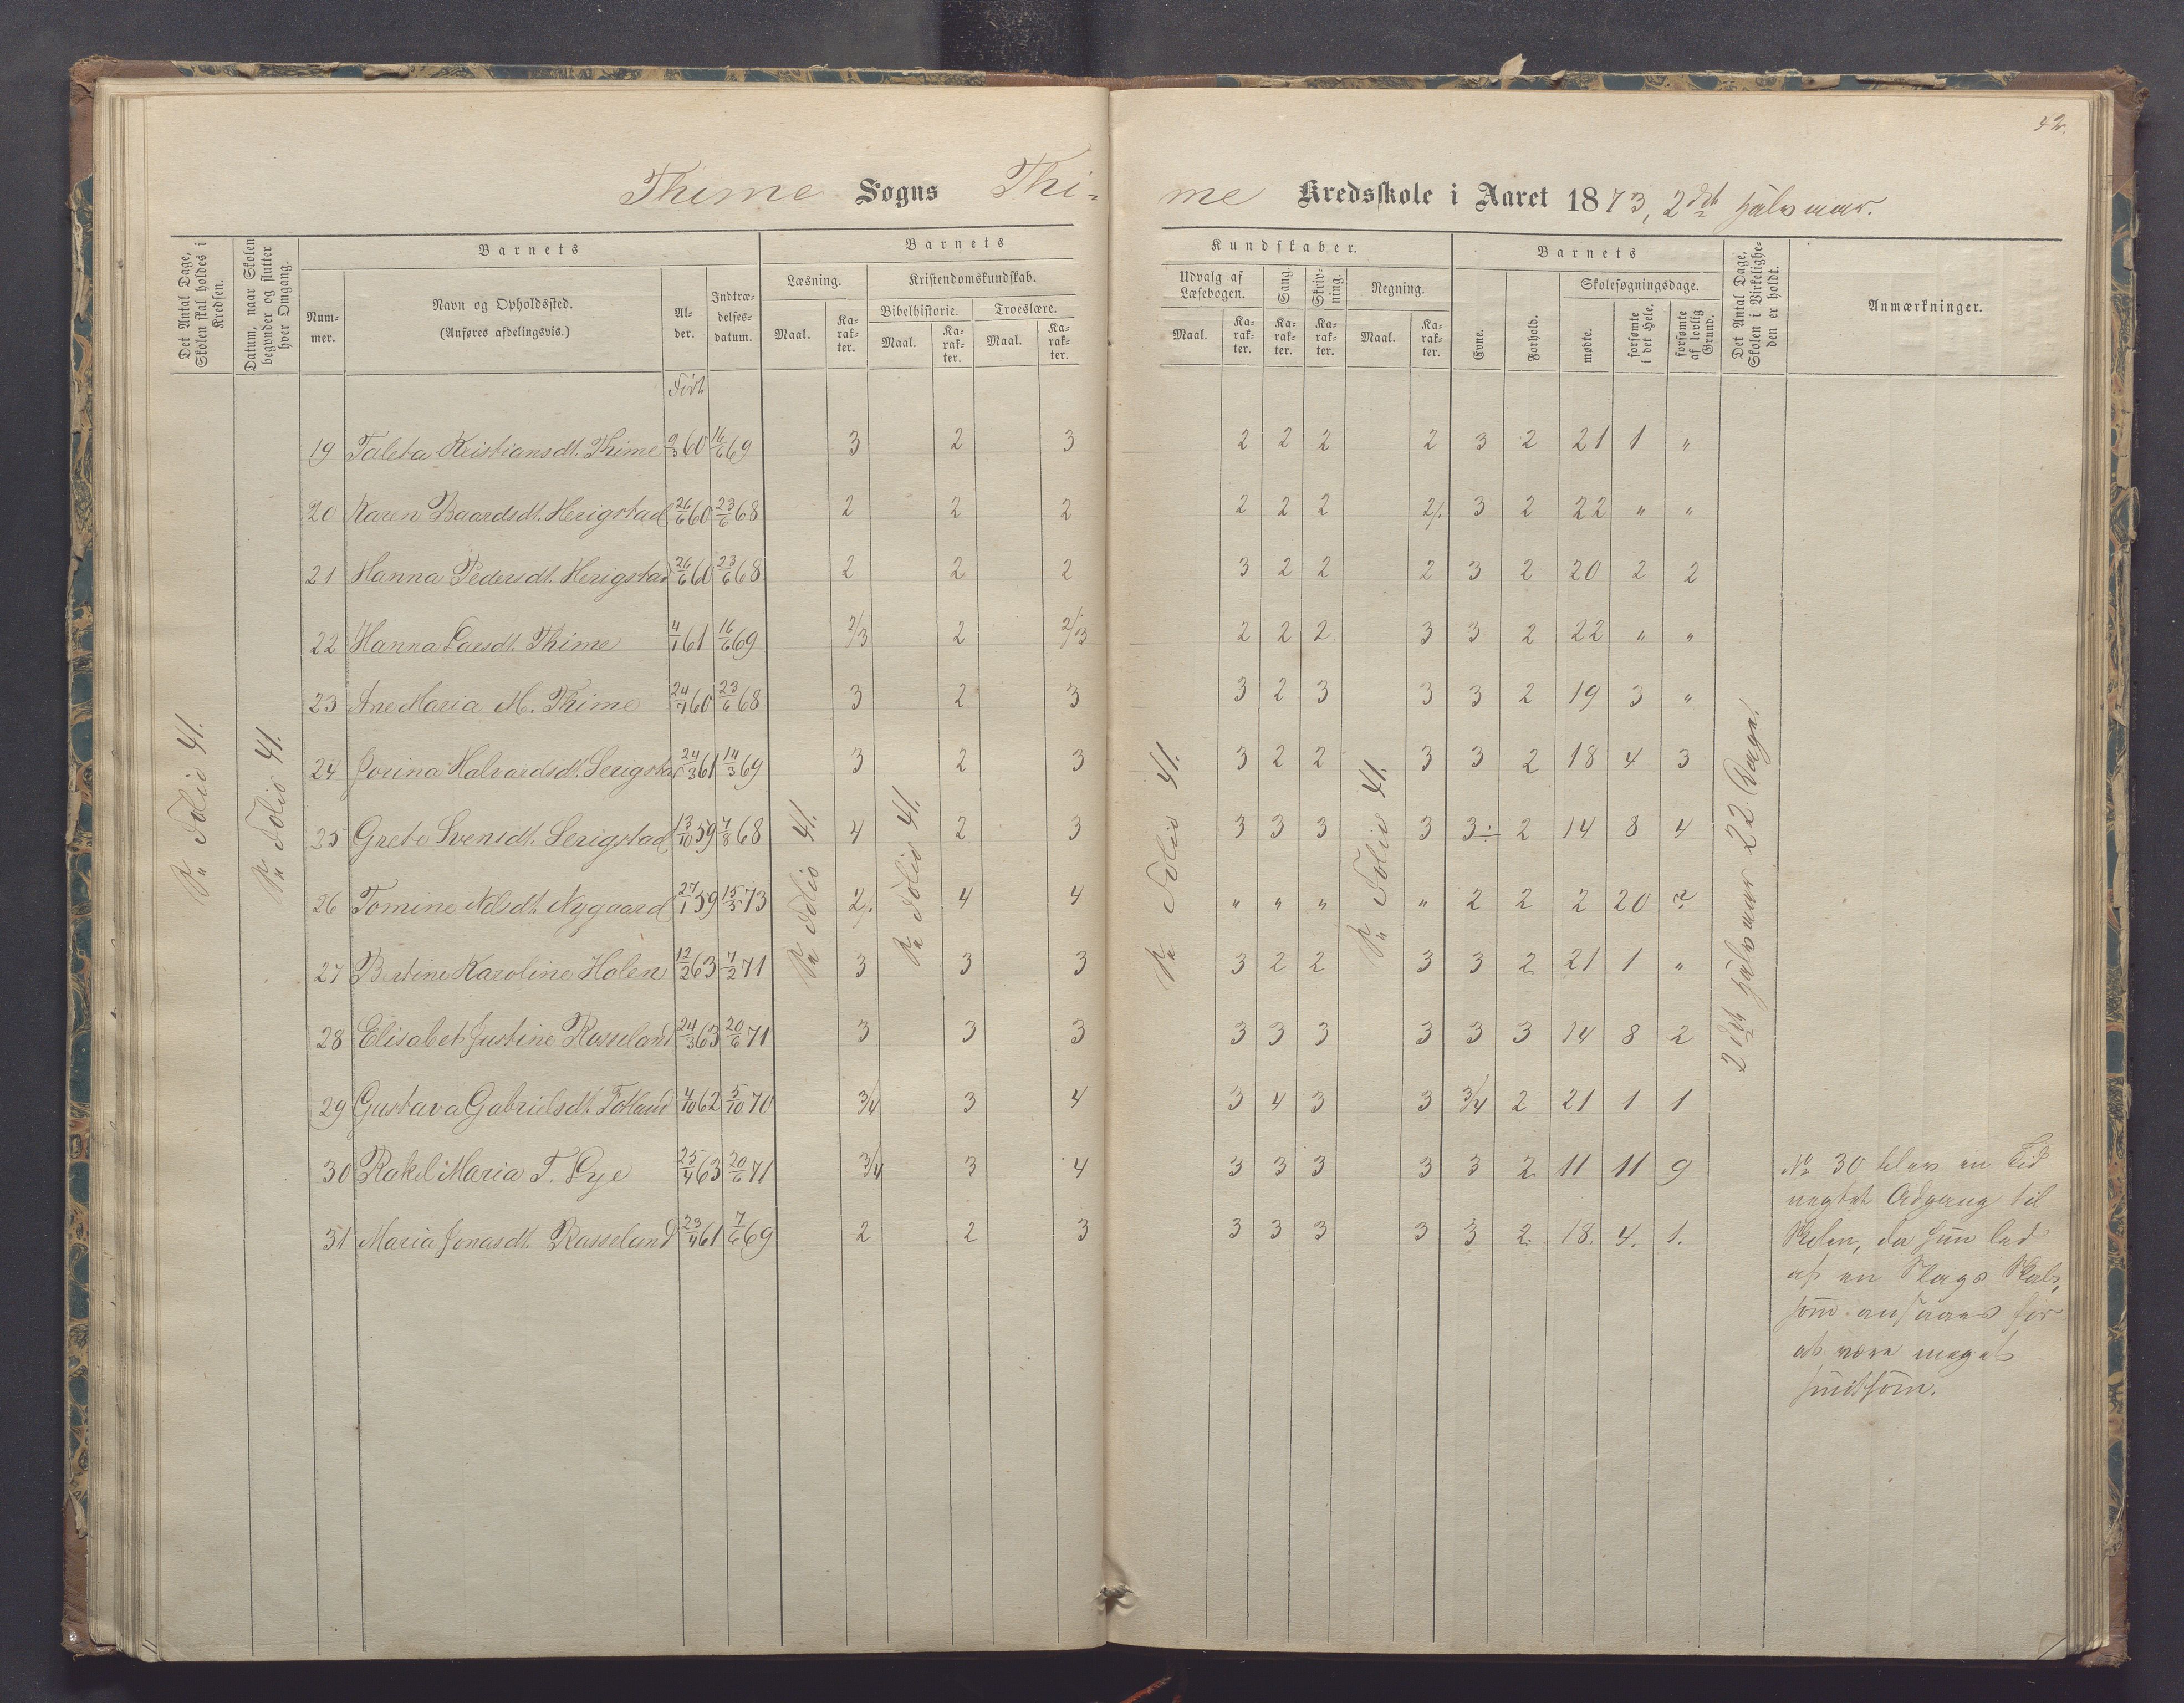 42.
Thime Sogns Thi-
me Kredsskole i Aaret 1873, 2det Halvaar.
Det Antal Dage, Skolen skal holdes i Kredsen.
Datum, naar Skolen begynder og slutter hver Omgang.
Barnets
Nummer.
Navn og Opholdssted.
(Anføres afdelingsvis.)
Alder.
Indtrædelsesdatum.
Barnets
Læsning.
Maal.
Karakter.
Kristendomskundskab.
Bibelhistorie.
Maal.
Karakter.
Troeslære.
Maal.
Karakter.
Kundskaber.
Udvalg af Læsebogen.
Maal.
Karakter.
Sang.
Karakter.
Skrivning.
Karakter.
Regning.
Maal.
Karakter.
Barnets
Evne.
Forhold.
Skolesøgningsdage.
mødte.
forsømte i det Hele.
forsømte af lovlig Grund.
Det Antal Dage, Skolen i Virkeligheden er holdt.
Anmærkninger.
Født
19 Taleta Kristiansdt. Thime 9/3 60 16/6 69 3 2 3 2 2 2 2 3 2 21 1 "
20 Karen Baardsdt. Herigstad 26/6 60 23/6 68 2 2 2 2 2 2 2/. 3 2 22 " "
21 Hanna Pedersdt. Herigstad 26/6 60 23/6 68 2 2 2 3 2 2 2 3 2 20 2 2
22 Hanna Larsdt. Thime 4/1 61 16/6 69 2/3 2 2/3 2 2 2 3 3 2 22 " "
23 Ane Maria M. Thime 24/7 60 23/6 68 3 2 3 3 2 3 3 3 2 19 3 "
24 Jorina Halvardsdt. Serigstad 24/3 61 14/3 69 3 2 3 3 2 2 3 3 2 18 4 3
25 Grete Svensdt. Serigstad 13/10 59 7/8 68 4 2 3 3 3 3 3 3÷ 2 14 8 4
26 Tomine Nilsdt. Nygaard 27/1 59 15/5 73 2/. 4 4 " " " " 2 2 2 20 ?
27 Bertine Karoline Holen 12/2 63 7/2 71 3 3 3 3 2 2 3 3 2 21 1 "
28 Elisabet Justine Rosseland 24/3 63 20/6 71 3 3 3 3 3 3 3 3 3 14 8 2
29 Gustava Gabrielsdt. Fotland 4/10 62 5/10 70 3/4 3 4 3 4 3 3 3/4 2 21 1 1
30 Rakel Maria T. Lye 25/4 63 20/6 71 3/4 3 4 3 3 3 3 3 2 11 11 9
31 Maria Jonasdt. Rosseland 23/4 61 7/6 69 2 2 3 3 3 3 3 3 2. 18. 4. 1.
Se Folio 41.
Se Folio 41.
Se Folio 41.
Se Folio 41.
Se Folio 41.
Se Folio 41.
2det Halvaar 22 Dage.
No 30 blev en Tid
negtet Adgang til
Skolen, da hun led
af en Slags Skab,
som ansaaes for
at være meget
smitsom.